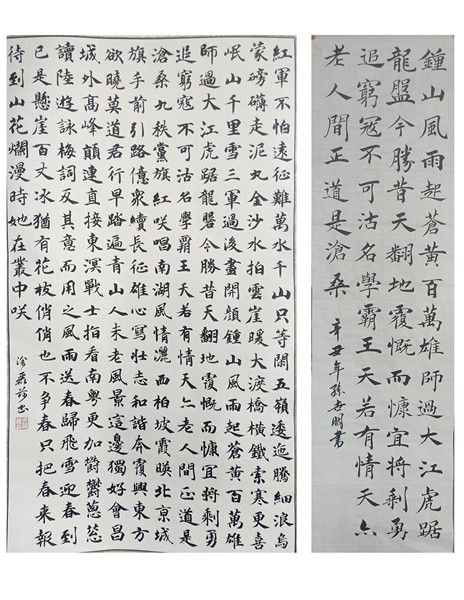 鍾山風雨起蒼黃百萬雄師過大江虎踞
龍盤今勝昔天翻地覆慨而慷宜將剩勇
追窮寇不可沽名學霸王天若有情天亦
老人間正道是滄桑 辛丑年孫 書
紅軍不怕遠征難萬水千山只等閑五嶺逶迤騰細浪烏
蒙磅礴走泥丸金沙水拍雲崖暖大渡橋橫鐵索寒更喜
岷山千里雪三軍過後盡開顏鍾山風雨起蒼黃百萬雄
師過大江虎踞龍盤今勝昔天翻地覆慨而慷宜將剩勇
追窮寇不可沽名學霸王天若有情天亦老人間正道是
滄桑九秩黨旗紅咲唱南湖風情濃西柏坡霞映北京城
旗手前引路億衆續長征雄心寫壯志和諧奔復興東方
欲曉莫道君行早踏遍青山人未老風景這邊獨好會昌
城外高峰顛連直接東溟戰士指看南粵更加鬱鬱蔥蔥
讀陸游詠梅詞反其意而用之風雨送春歸飛雪迎春到
已是懸崖百丈冰猶有花枝俏俏也不爭春只把春來報
待到山花爛漫時她在叢中咲